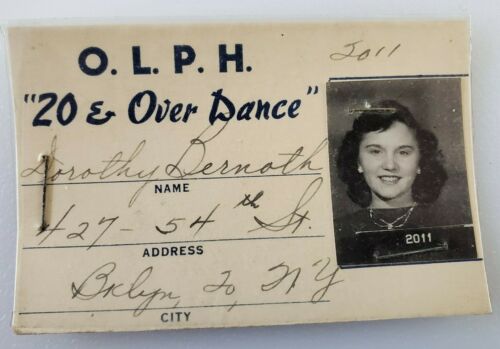 2011
O. L. P. H.
"20 & Over Dance"
Dorothy Bernoth
NAME
427-54th St.
ADDRESS
Bklyn, 20, N Y
CITY
2011